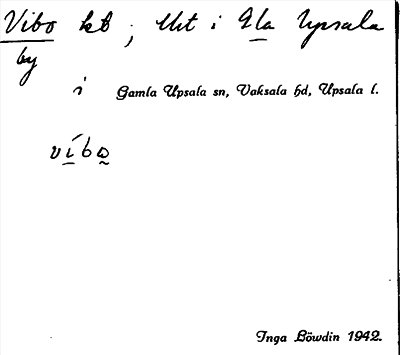 Vibo kb ; Utt i Gla Upsala
by
i Gamla Upsala sn, Vaksala hd, Upsala l.
víbo
Inga Löwdin 1942.